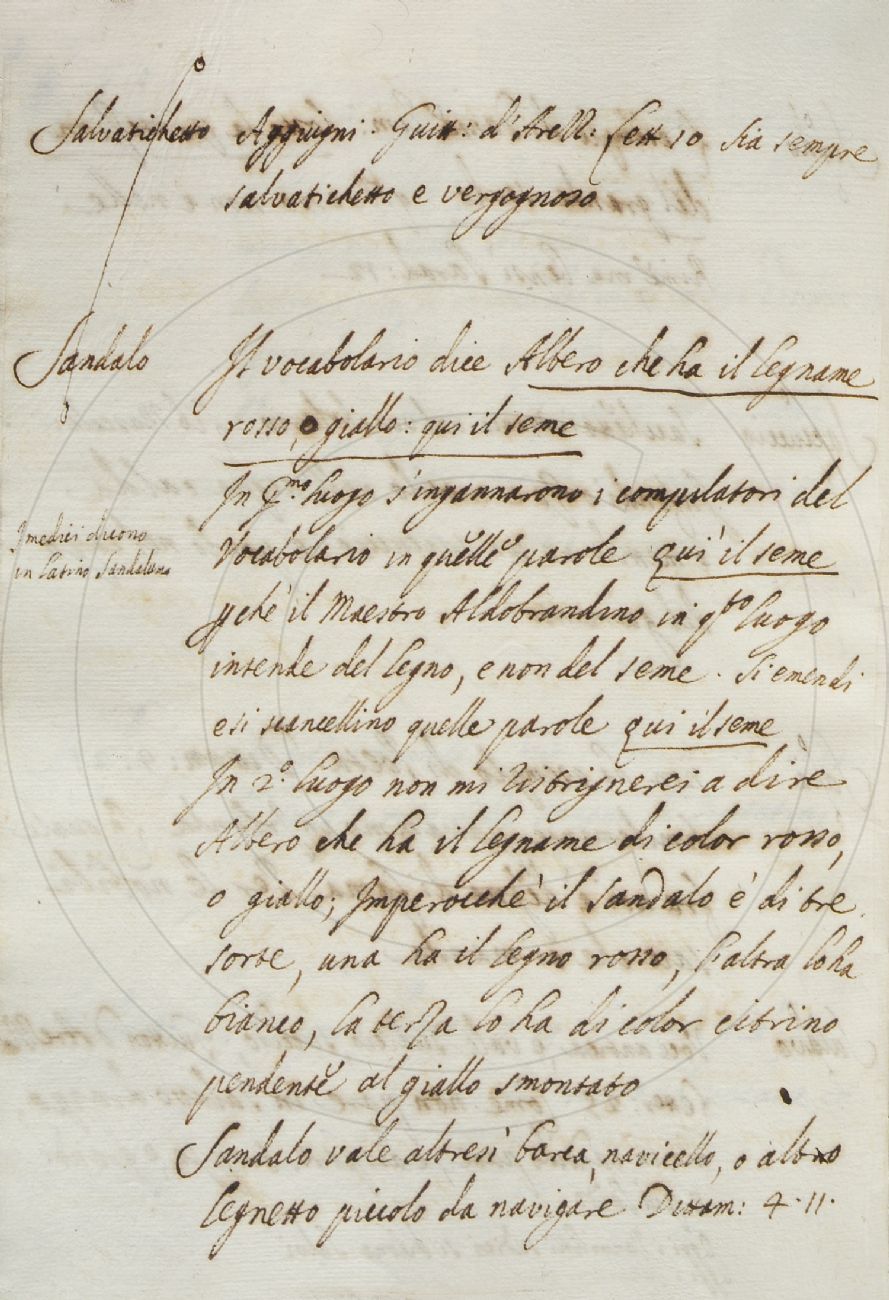 Salvatichetto Aggiugni: Guitt: d'Arezz: Lett 10 Sia sempre
salvatichetto e vergognoso
Sandalo Il vocabolario dice Albero che ha il legname
rosso, o giallo: qui il seme
In p.mo luogo s'ingannarono i compilatori del
Vocabolario in quelle parole qui il seme
I medici dicono
in latino Sandalum
pchè il Maestro Aldobrandino in q.to luogo
intende del legno, e non del seme. Si emendi
e si scancellino quelle parole qui il seme
In 2.o luogo non mi ristrignerei a dire
Albero che ha il legname di color rosso,
o giallo; Imperocchè il sandalo è di tre
sorte, una ha il legno rosso, l'altra lo ha
bianco, la terza lo ha di color citrino
pendente al giallo smontato
Sandalo vale altresì barca, navicello, o altro
legnetto piccolo da navigare Dittam: 4. 11.